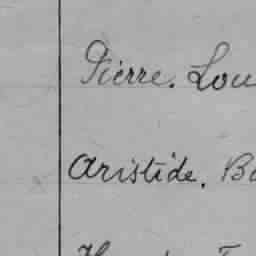 Pierre. Lou
Aristide. B